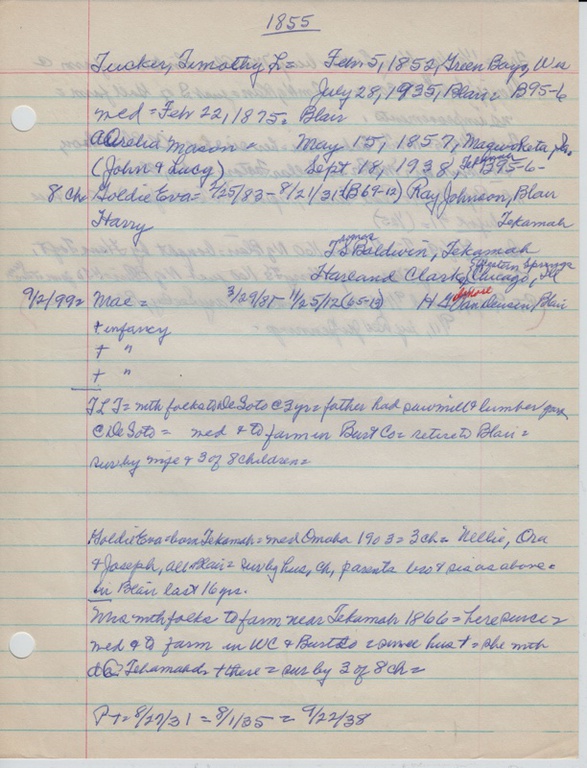 1855
Tucker, Timothy L = Feb 5, 1852, Green Bay, Wis
July 28, 1935, Blair B95-6
med = Feb 22, 1875. Blair
Orelia Mason = May 15, 1857, Maquoketa, Ia.
(John & Lucy) Sept 18, 1938 Tekamah B95-6-
8 ch Goldie Eva = 1/25/83 - 8/21/31 (B69-12) Ray Johnson, Blair
Harry Tekamah
T S Baldwin, Tekamah
Harland Clark, Western Springs Chicago, Ill
9/2/99 = Mae = 3/29/85 - 11/25/12 (65-13) H G VanDeusen, Blair
+ infancy
+ "
+ "
TLT = mth folks to DeSoto @ 3 yr = father had sawmill & lumber yard
@ DeSoto = med & to farm in Burt Co = retire to Blair =
sur by wife & 3 of 8 children =
Goldie Eva = born Tekamah = med Omaha 1903 = 3 ch = Nellie, Ora
& Joseph, all Blair = sur by hus, ch, parents bro & sis as above =
in Blair last 16 yrs.
Mrs mth folks to farm near Tekamah 1866 = here since =
med & to farm in WC & Burt Co = since hus + = she mth
Tekamah + there = sur by 3 of 8 ch =
PT = 8/27/31 = 8/1/35 = 9/22/38